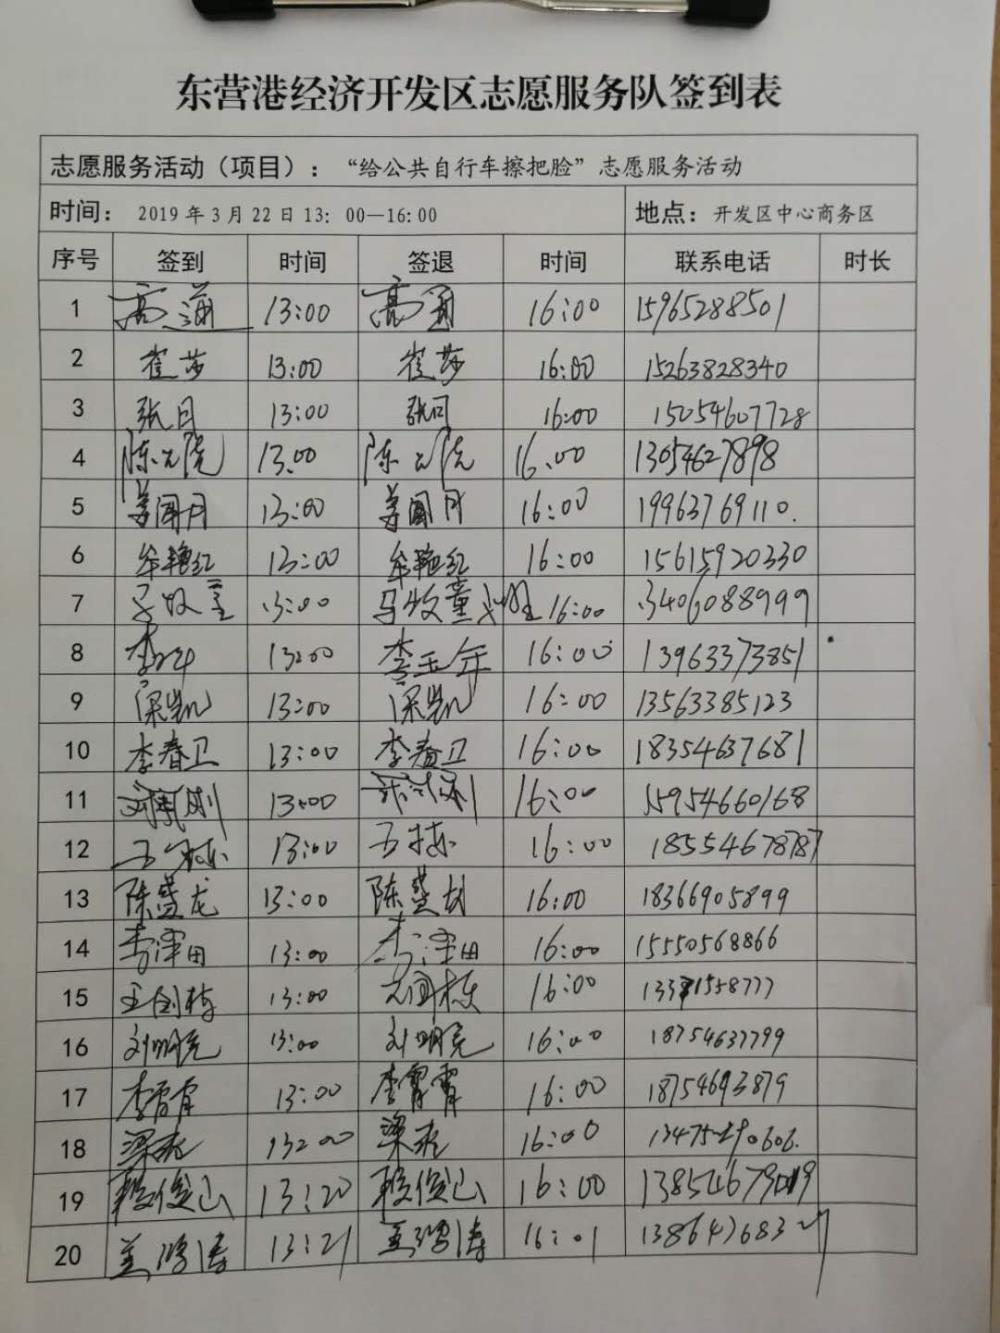 东营港经济开发区志愿服务队签到表
志愿服务活动（项目）：“给公共自行车擦把脸”志愿服务活动
时间： 2019年3月22日13：00—16:00 地点：开发区中心商务区
序号 签到 时间 签退 时间 联系电话 时长
1 高 13:00 高 16:00 15965288501
2 崔莎 13:00 崔莎 16:00 15263828340
3 张 13:00 张 16:00 15054607728
4 陈 13.00 陈 16.00 13054627898
5 姜闻月 13:00 姜闻月 16:00 19963769110.
6 牟艳红 13:00 牟艳红 16:00 15615920330
7 马牧童 13:00 马牧童 16:00 13406088999
8 李 13:00 李玉年 16:00 13963373851
9 梁凯 13:00 梁凯 16:00 13563385123
10 李春卫 13:00 李春卫 16:00 18354637681
11 13:00 16:00 15954660168
12 王栋 13:00 王栋 16:00 18554678787
13 陈盛龙 13:00 陈盛龙 16:00 18366905899
14 李泽田 13:00 李泽田 16:00 15550568866
15 13:00 16:00
16 刘明亮 13:00 刘明亮 16:00 18754637799
17 李霄霄 13:00 李霄霄 16:00 18754693879
18 梁 13:00 梁 16:00
19 俊山 13:20 俊山 16:00
20 姜鸿涛 13:21 姜鸿涛 16:01